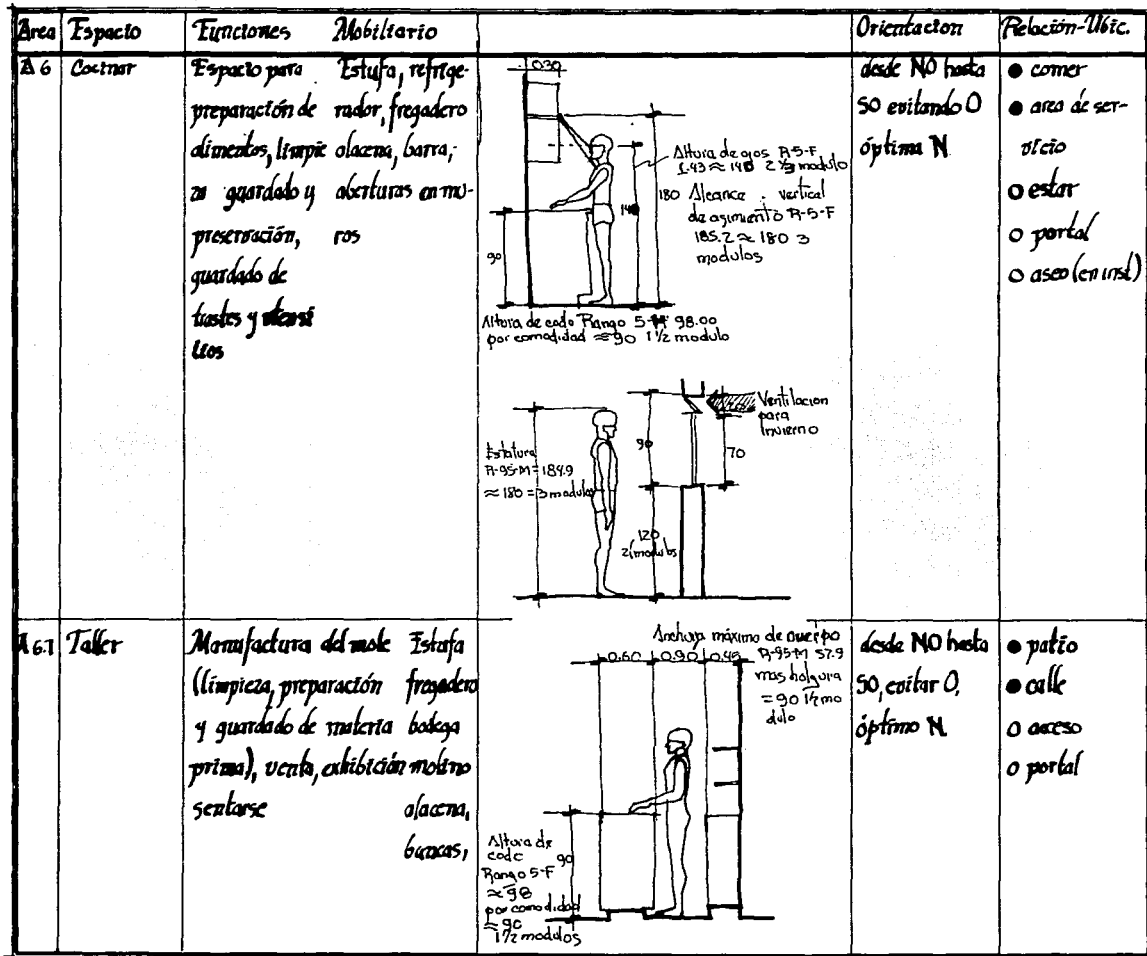 Area Espacio Funciones Mobiliario Orientacion Relación-Ubic.
A 6 Cocinar
Espacio para
preparación de
alimentos, limpie
za guardado y
preservación,
guardado de
trastes y utensi
lios
Estufa, refrige-
rador, fregadero
alacena, barra,
aberturas en mu-
ros
0.30
Altura de ojos R-5-F
1.43 ≈ 140 2 1/3 modulo
180 Alcance vertical
de asimiento R-5-F
185.2 ≈ 180 3
modulos
140
90
Altura de codo Rango 5-M 98.00
por comodidad ≈ 90 1 1/2 modulo
Estatura
R-95-M = 184.9
≈ 180 = 3 modulos
90
Ventilacion
para
invierno
70
120
2 modulos
desde NO hasta
SO evitando O
óptima N
● comer
● area de ser-
vicio
o estar
o portal
o aseo (en inst)
A 6.1 Taller
Manufactura del mole
(limpieza, preparación
y guardado de materia
prima), venta, exhibición
sentarse
Estufa
fregadero
bodega
molino
alacena,
bancas,
Anchura máximo de cuerpo
R-95-M 57.9
mas holgura
= 90 1 1/2 mo
dulo
0.60 0.90 0.45
Altura de
codo
Rango 5-F
≈ 98
por comodidad
≈ 90
1 1/2 modulos
90
desde NO hasta
SO, evitar O,
óptimo N.
● patio
● calle
o acceso
o portal